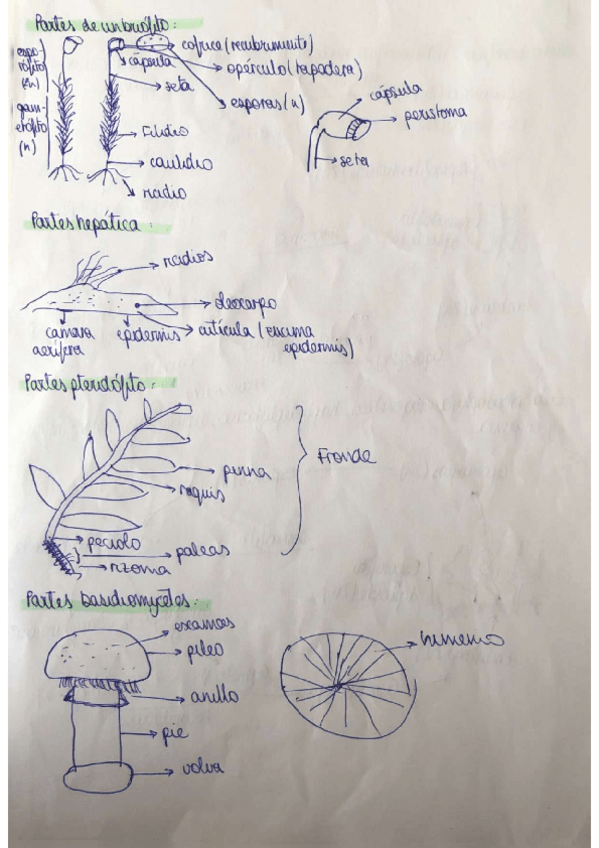 Partes de un briófito:
espo-
rófito
(2n)
gam-
etófito
(n)
cápsula
seta
cofia (recubrimiento)
opérculo (tapadera)
esporas (n)
Filidio
caulidio
radio
cápsula
peristoma
seta
Partes hepática:
radios
cámara
aerífera
epidermis
cutícula (encima
epidermis)
Partes pteridófito:
pinna
raquis
Fronde
peciolo
paleas
rizoma
Partes basidiomycetes:
escamas
pileo
anillo
pie
volva
himenio